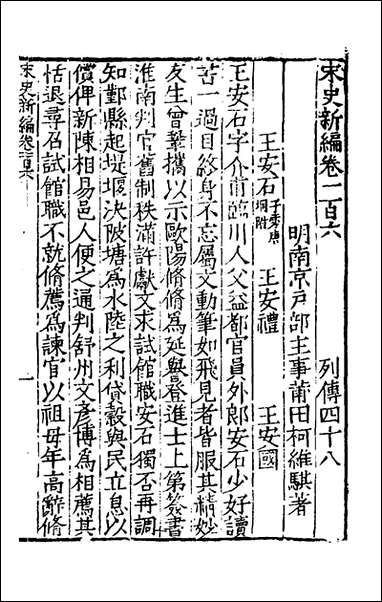 宋史新編卷一百六　列傳四十八
明南京戶部主事莆田柯維騏著
王安石子雱唐坰附　王安禮　王安國
王安石字介甫臨川人父益都官員外郎安石少好讀
書一過目終身不忘屬文動筆如飛見者皆服其精妙
友生曾鞏攜以示歐陽脩脩為延譽登進士上第簽書
淮南判官舊制秩滿許獻文求試館職安石獨否再調
知鄞縣起堤堰決陂塘為水陸之利貸穀與民立息以
償俾新陳相易邑人便之通判舒州文彥博為相薦其
恬退尋召試館職不就脩薦為諫官以祖母年高辭脩
宋史新編卷一百六
一